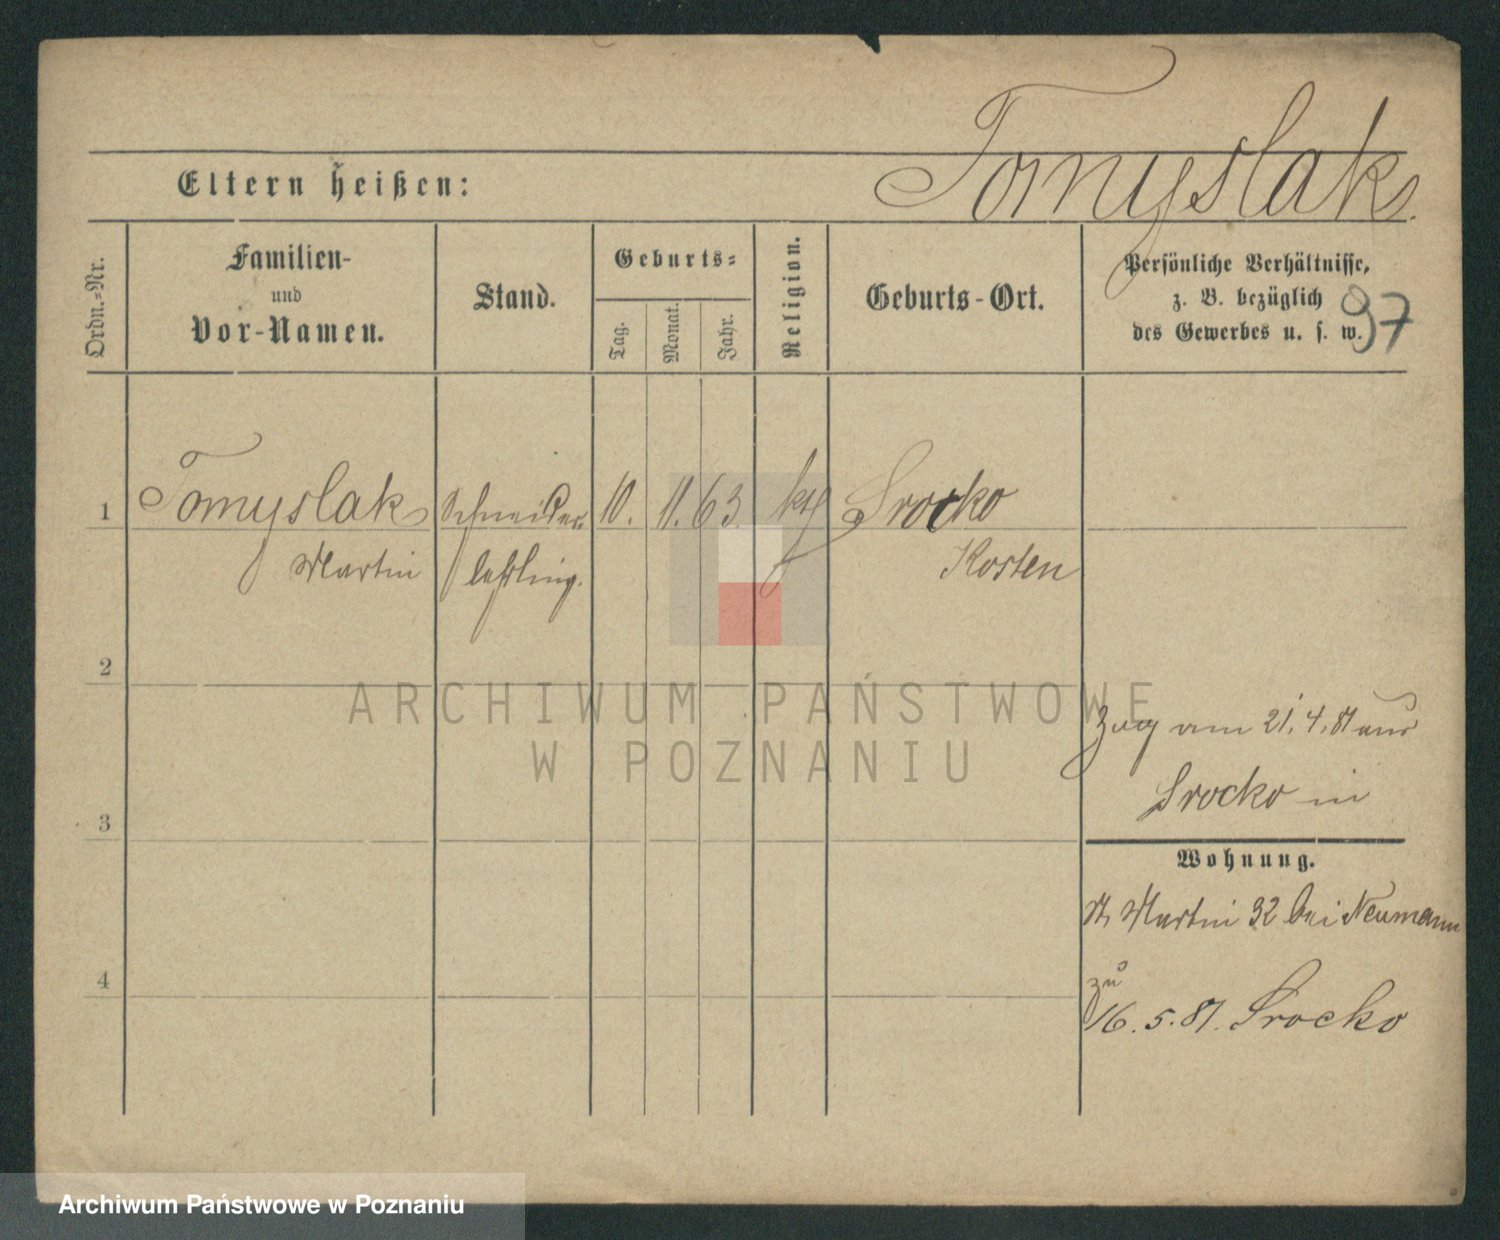 Tomyslak
Eltern heißen:
Ordn.-Nr.
Familien-
und
Vor-Namen.
Stand.
Geburts-
Tag.
Monat.
Jahr.
Religion.
Geburts-Ort.
Persönliche Verhältnisse,
z. B. bezüglich
des Gewerbes u. s. w.
97
1 Tomyslak Schneider 10. 11. 63 kth Srocko
Martin lehrling. Kosten
2
ARCHIWUM PAŃSTWOWE
W POZNANIU
Zug am 21.4.81 aus
Srocko in
3
Wohnung.
St. Martin 32 bei Neumann
4
16.5.81. Srocko
Archiwum Państwowe w Poznaniu